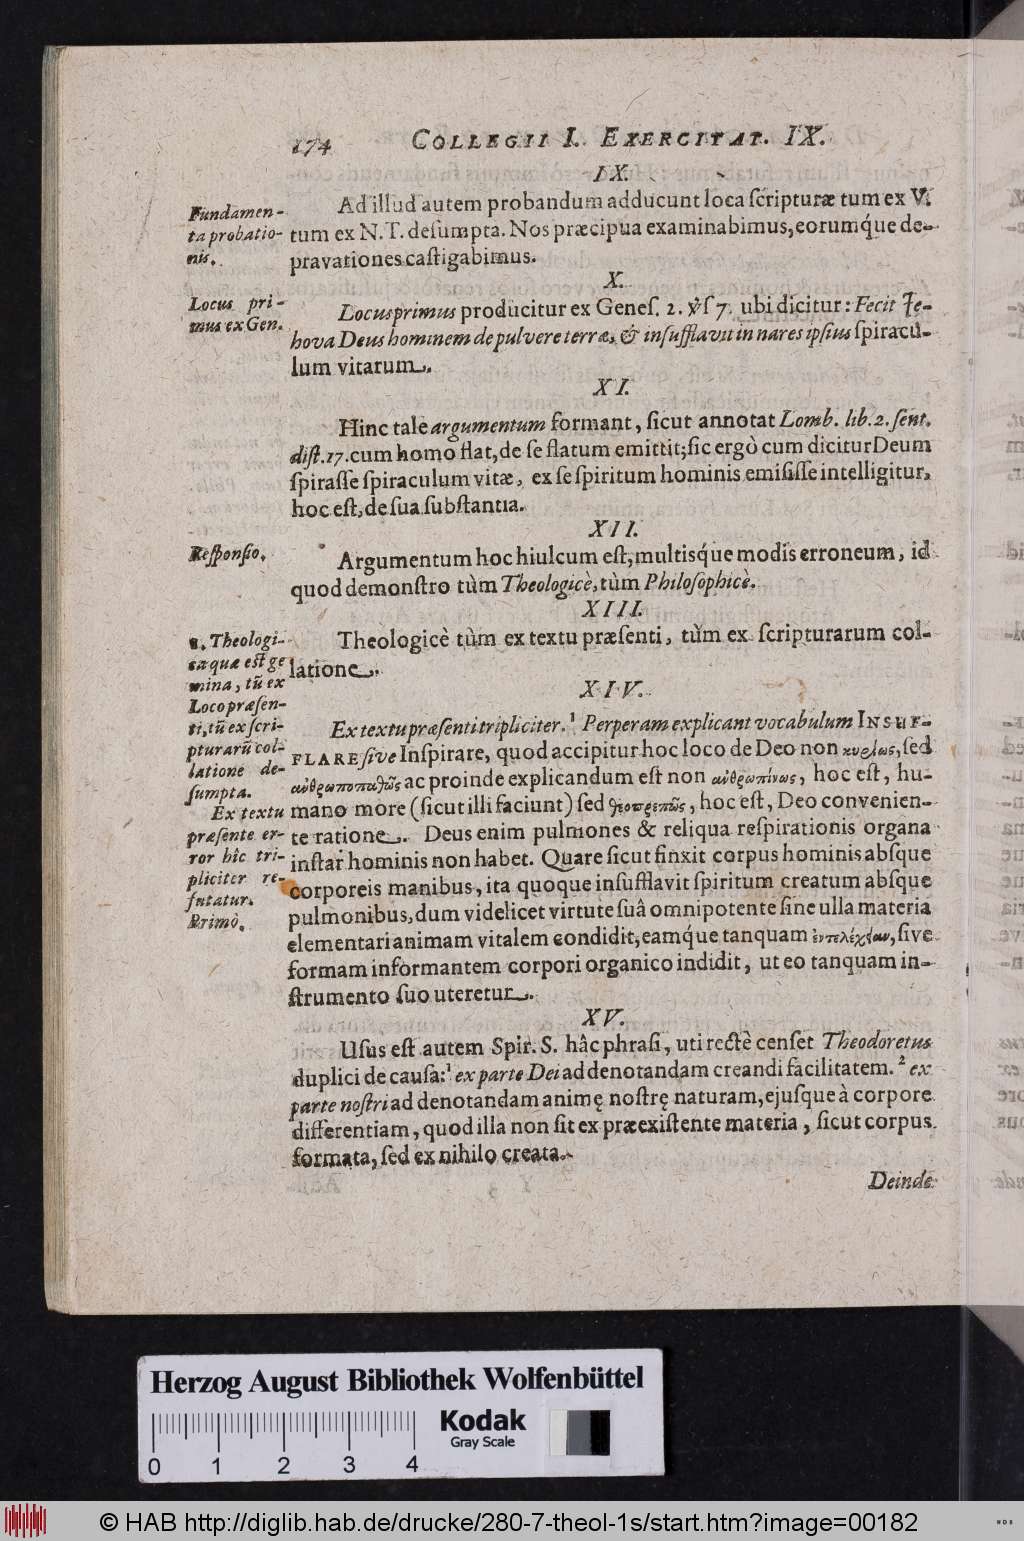 174 COLLEGII I. EXERCITAT. IX.
IX.
Fundamen-
ta probatio-
nis.
Ad illud autem probandum adducunt loca ſcripturæ tum ex V.
tum ex N.T. deſumpta. Nos præcipua examinabimus, eorumq́ue de-
pravationes caſtigabimus.
X.
Locus pri-
mus ex Gen.
Locus primus producitur ex Geneſ. 2. vſ 7. ubi dicitur: Fecit Je-
hova Deus hominem de pulvere terræ, & inſufflavit in nares ipſius ſpiracu-
lum vitarum.
XI.
Hinc tale argumentum formant, ſicut annotat Lomb. lib. 2. ſent.
diſt. 17. cum homo flat, de ſe flatum emittit; ſic ergò cum dicitur Deum
ſpiraſſe ſpiraculum vitæ, ex ſe ſpiritum hominis emiſiſſe intelligitur,
hoc eſt, de ſua ſubſtantia.
XII.
Reſponſio.
Argumentum hoc hiulcum eſt, multisq́ue modis erroneum, id
quod demonſtro tùm Theologicè, tùm Philoſophicè.
XIII.
1. Theologi-
ca quæ eſt ge
mina, tũ ex
Loco præſen-
ti, tũ ex ſcri-
pturarũ col-
latione de-
ſumpta.
Theologicè tùm ex textu præſenti, tùm ex ſcripturarum col-
latione.
XIV.
Ex textu
præſente er-
ror hîc tri-
pliciter re-
futatur.
Primò.
Ex textu præſenti tripliciter. 1 Perperam explicant vocabulum INSUF-
FLARE ſive Inſpirare, quod accipitur hoc loco de Deo non κυρίως, ſed
ανθρωποπαθῶς ac proinde explicandum eſt non ανθρωπίνως, hoc eſt, hu-
mano more (ſicut illi faciunt) ſed θεοπρεπῶς, hoc eſt, Deo convenien-
te ratione. Deus enim pulmones & reliqua reſpirationis organa
inſtar hominis non habet. Quare ſicut finxit corpus hominis absque
corporeis manibus, ita quoque inſufflavit ſpiritum creatum absque
pulmonibus, dum videlicet virtute ſuâ omnipotente ſine ulla materia
elementari animam vitalem condidit, eamq́ue tanquam ἐντελέχειαν, ſive
formam informantem corpori organico indidit, ut eo tanquam in-
ſtrumento ſuo uteretur.
XV.
Uſus eſt autem Spir. S. hâc phraſi, uti rectè cenſet Theodoretus
duplici de cauſa: 1 ex parte Dei ad denotandam creandi facilitatem. 2 ex
parte noſtri ad denotandam animę noſtrę naturam, ejuſque à corpore
differentiam, quod illa non ſit ex præexiſtente materia, ſicut corpus
formata, ſed ex nihilo creata.
Deinde
Herzog August Bibliothek Wolfenbüttel
Kodak
Gray Scale
0 1 2 3 4
© HAB http://diglib.hab.de/drucke/280-7-theol-1s/start.htm?image=00182